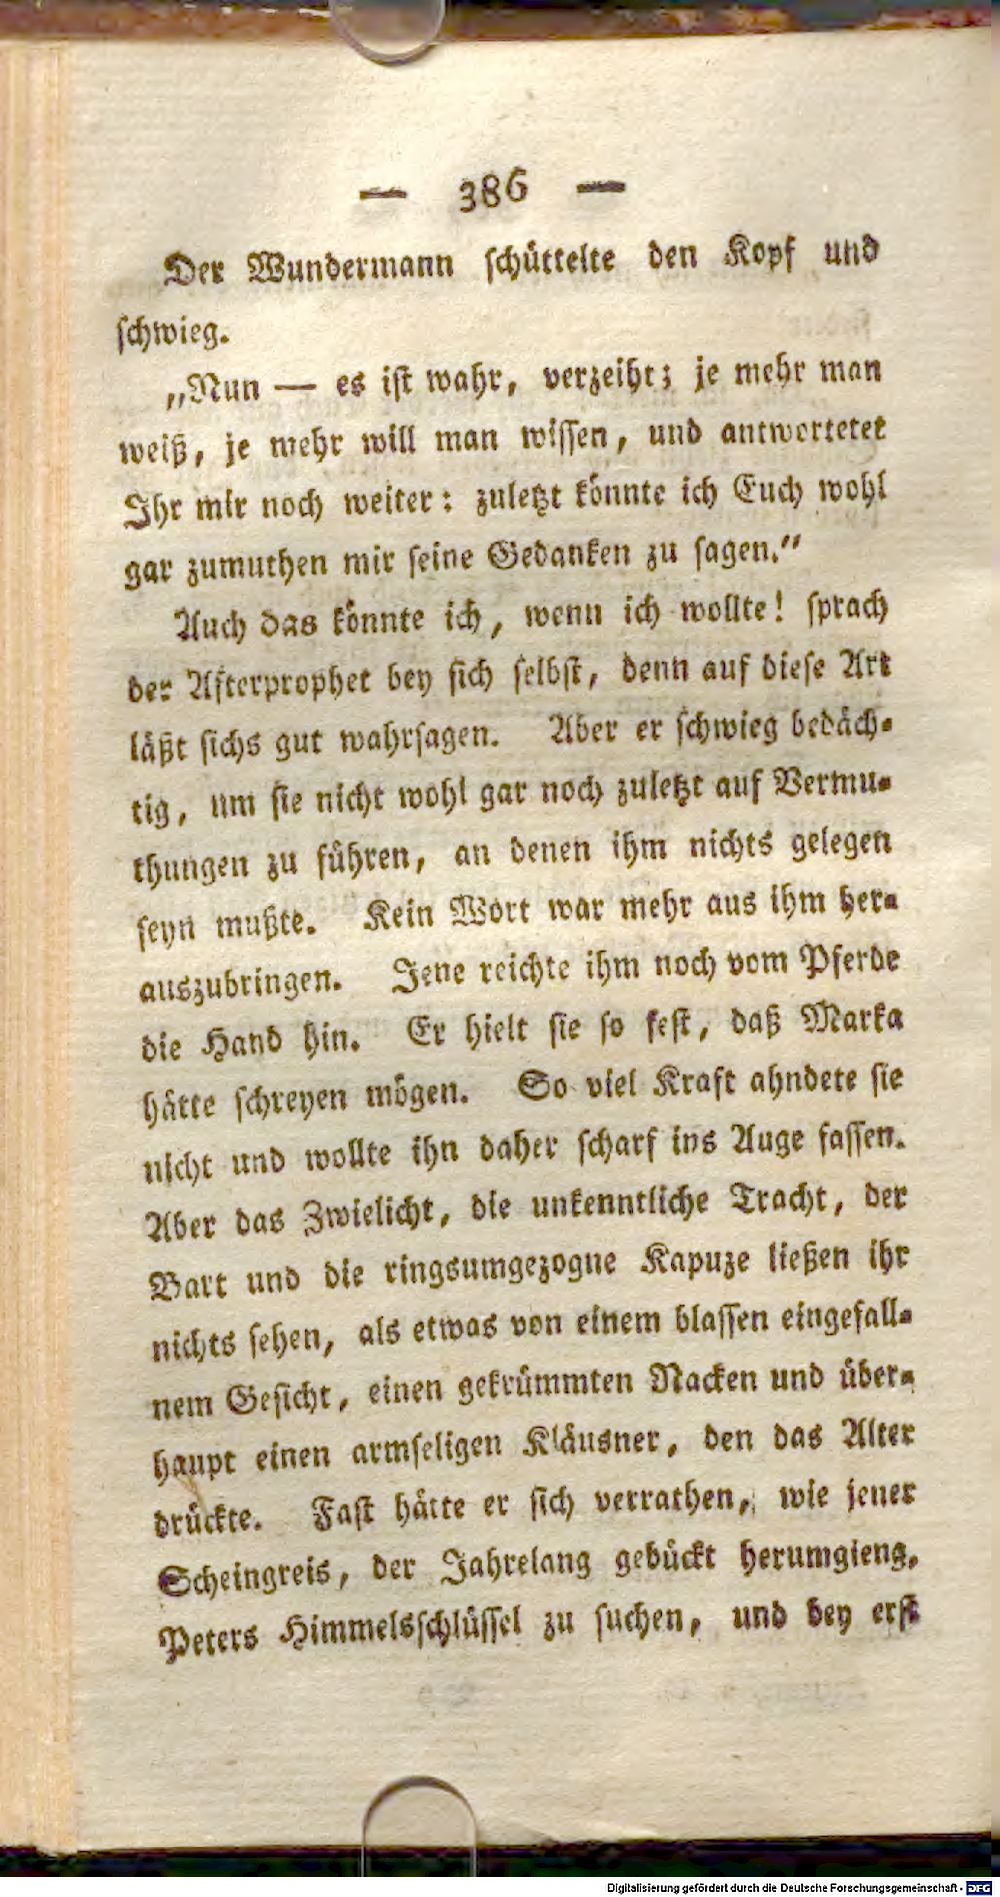 — 386 —
Der Wundermann schüttelte den Kopf und
schwieg.
„Nun — es ist wahr, verzeiht; je mehr man
weiß, je mehr will man wissen, und antwortetet
Ihr mir noch weiter: zuletzt könnte ich Euch wohl
gar zumuthen mir seine Gedanken zu sagen.“
Auch das könnte ich, wenn ich wollte! sprach
der Afterprophet bey sich selbst, denn auf diese Art
läßt sichs gut wahrsagen. Aber er schwieg bedäch-
tig, um sie nicht wohl gar noch zuletzt auf Vermu-
thungen zu führen, an denen ihm nichts gelegen
seyn mußte. Kein Wort war mehr aus ihm her-
auszubringen. Jene reichte ihm noch vom Pferde
die Hand hin. Er hielt sie so fest, daß Marka
hätte schreyen mögen. So viel Kraft ahndete sie
nicht und wollte ihn daher scharf ins Auge fassen.
Aber das Zwielicht, die unkenntliche Tracht, der
Bart und die ringsumgezogne Kapuze ließen ihr
nichts sehen, als etwas von einem blassen eingefall-
nem Gesicht, einen gekrümmten Nacken und über-
haupt einen armseligen Kläusner, den das Alter
drückte. Fast hätte er sich verrathen, wie jener
Scheingreis, der Jahrelang gebückt herumgieng,
Peters Himmelsschlüssel zu suchen, und bey erst
Digitalisierung gefördert durch die Deutsche Forschungsgemeinschaft - DFG